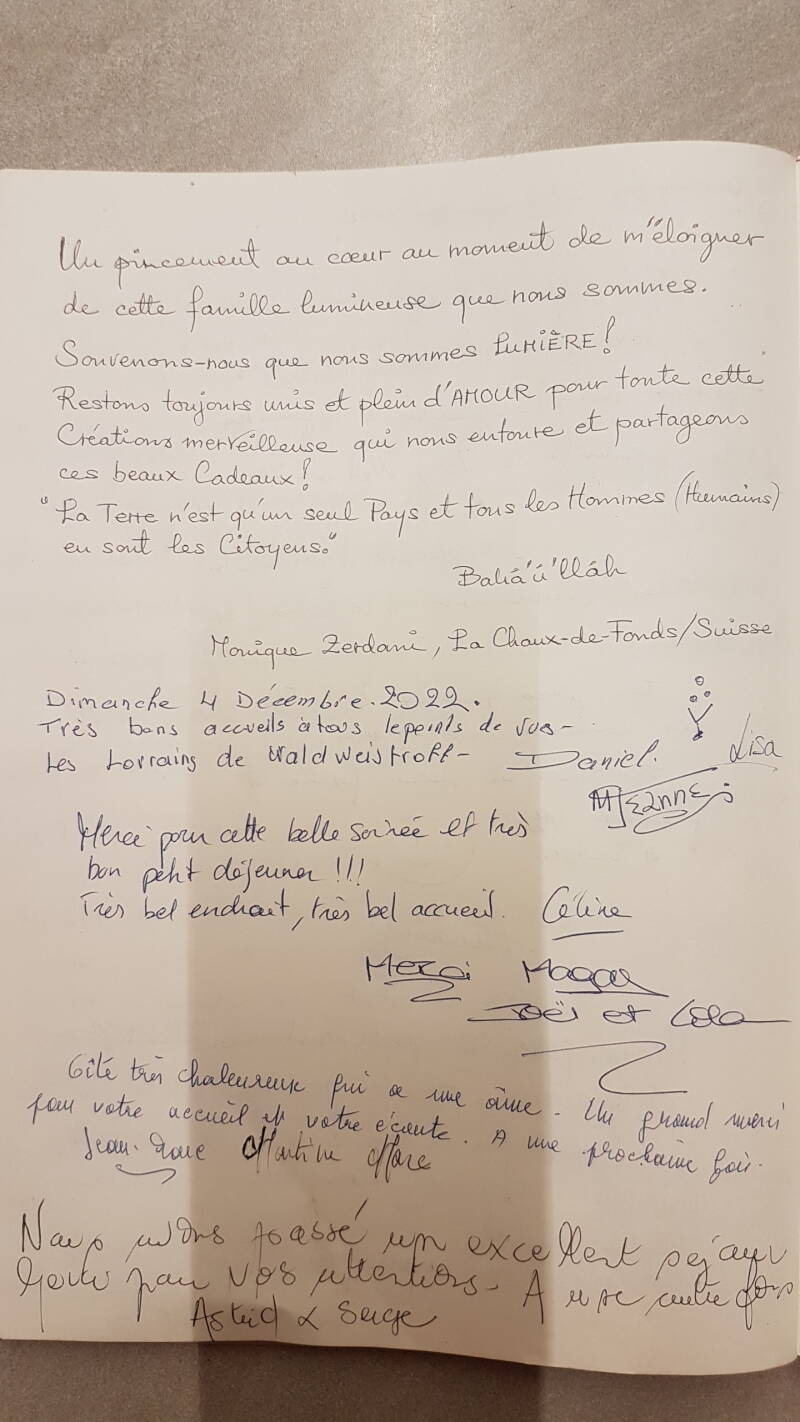 Un pincement au cœur au moment de m'éloigner
de cette famille lumineuse que nous sommes.
Souvenons-nous que nous sommes LUMIÈRE!
Restons toujours unis et plein d'AMOUR pour toute cette
Créations merveilleuse qui nous entoure et partageons
ces beaux Cadeaux!
"La Terre n'est qu'un seul Pays et tous les Hommes (Humains)
en sont les Citoyens."
Bahá'ú'lláh
Monique Zerdani, La Chaux-de-Fonds/Suisse
Dimanche 4 Décembre.2022.
Très bons accueils à tous lepoints de vue-
Les Lorrains de Waldweistroff- Daniel. Lisa
MJeanne
Merci pour cette belle soirée et très
bon petit déjeuner !!!
Très bel endroit, très bel accueil. Céline
Merci
Joël et Lola
Gîte très chaleureux qui a une âme. Un grand merci
pour votre accueil et votre écoute. A une prochaine fois.
Jean-Marc Martine
Nous avons passé un excellent séjour
pour vos attentions. A une autre fois
Astrid & Serge